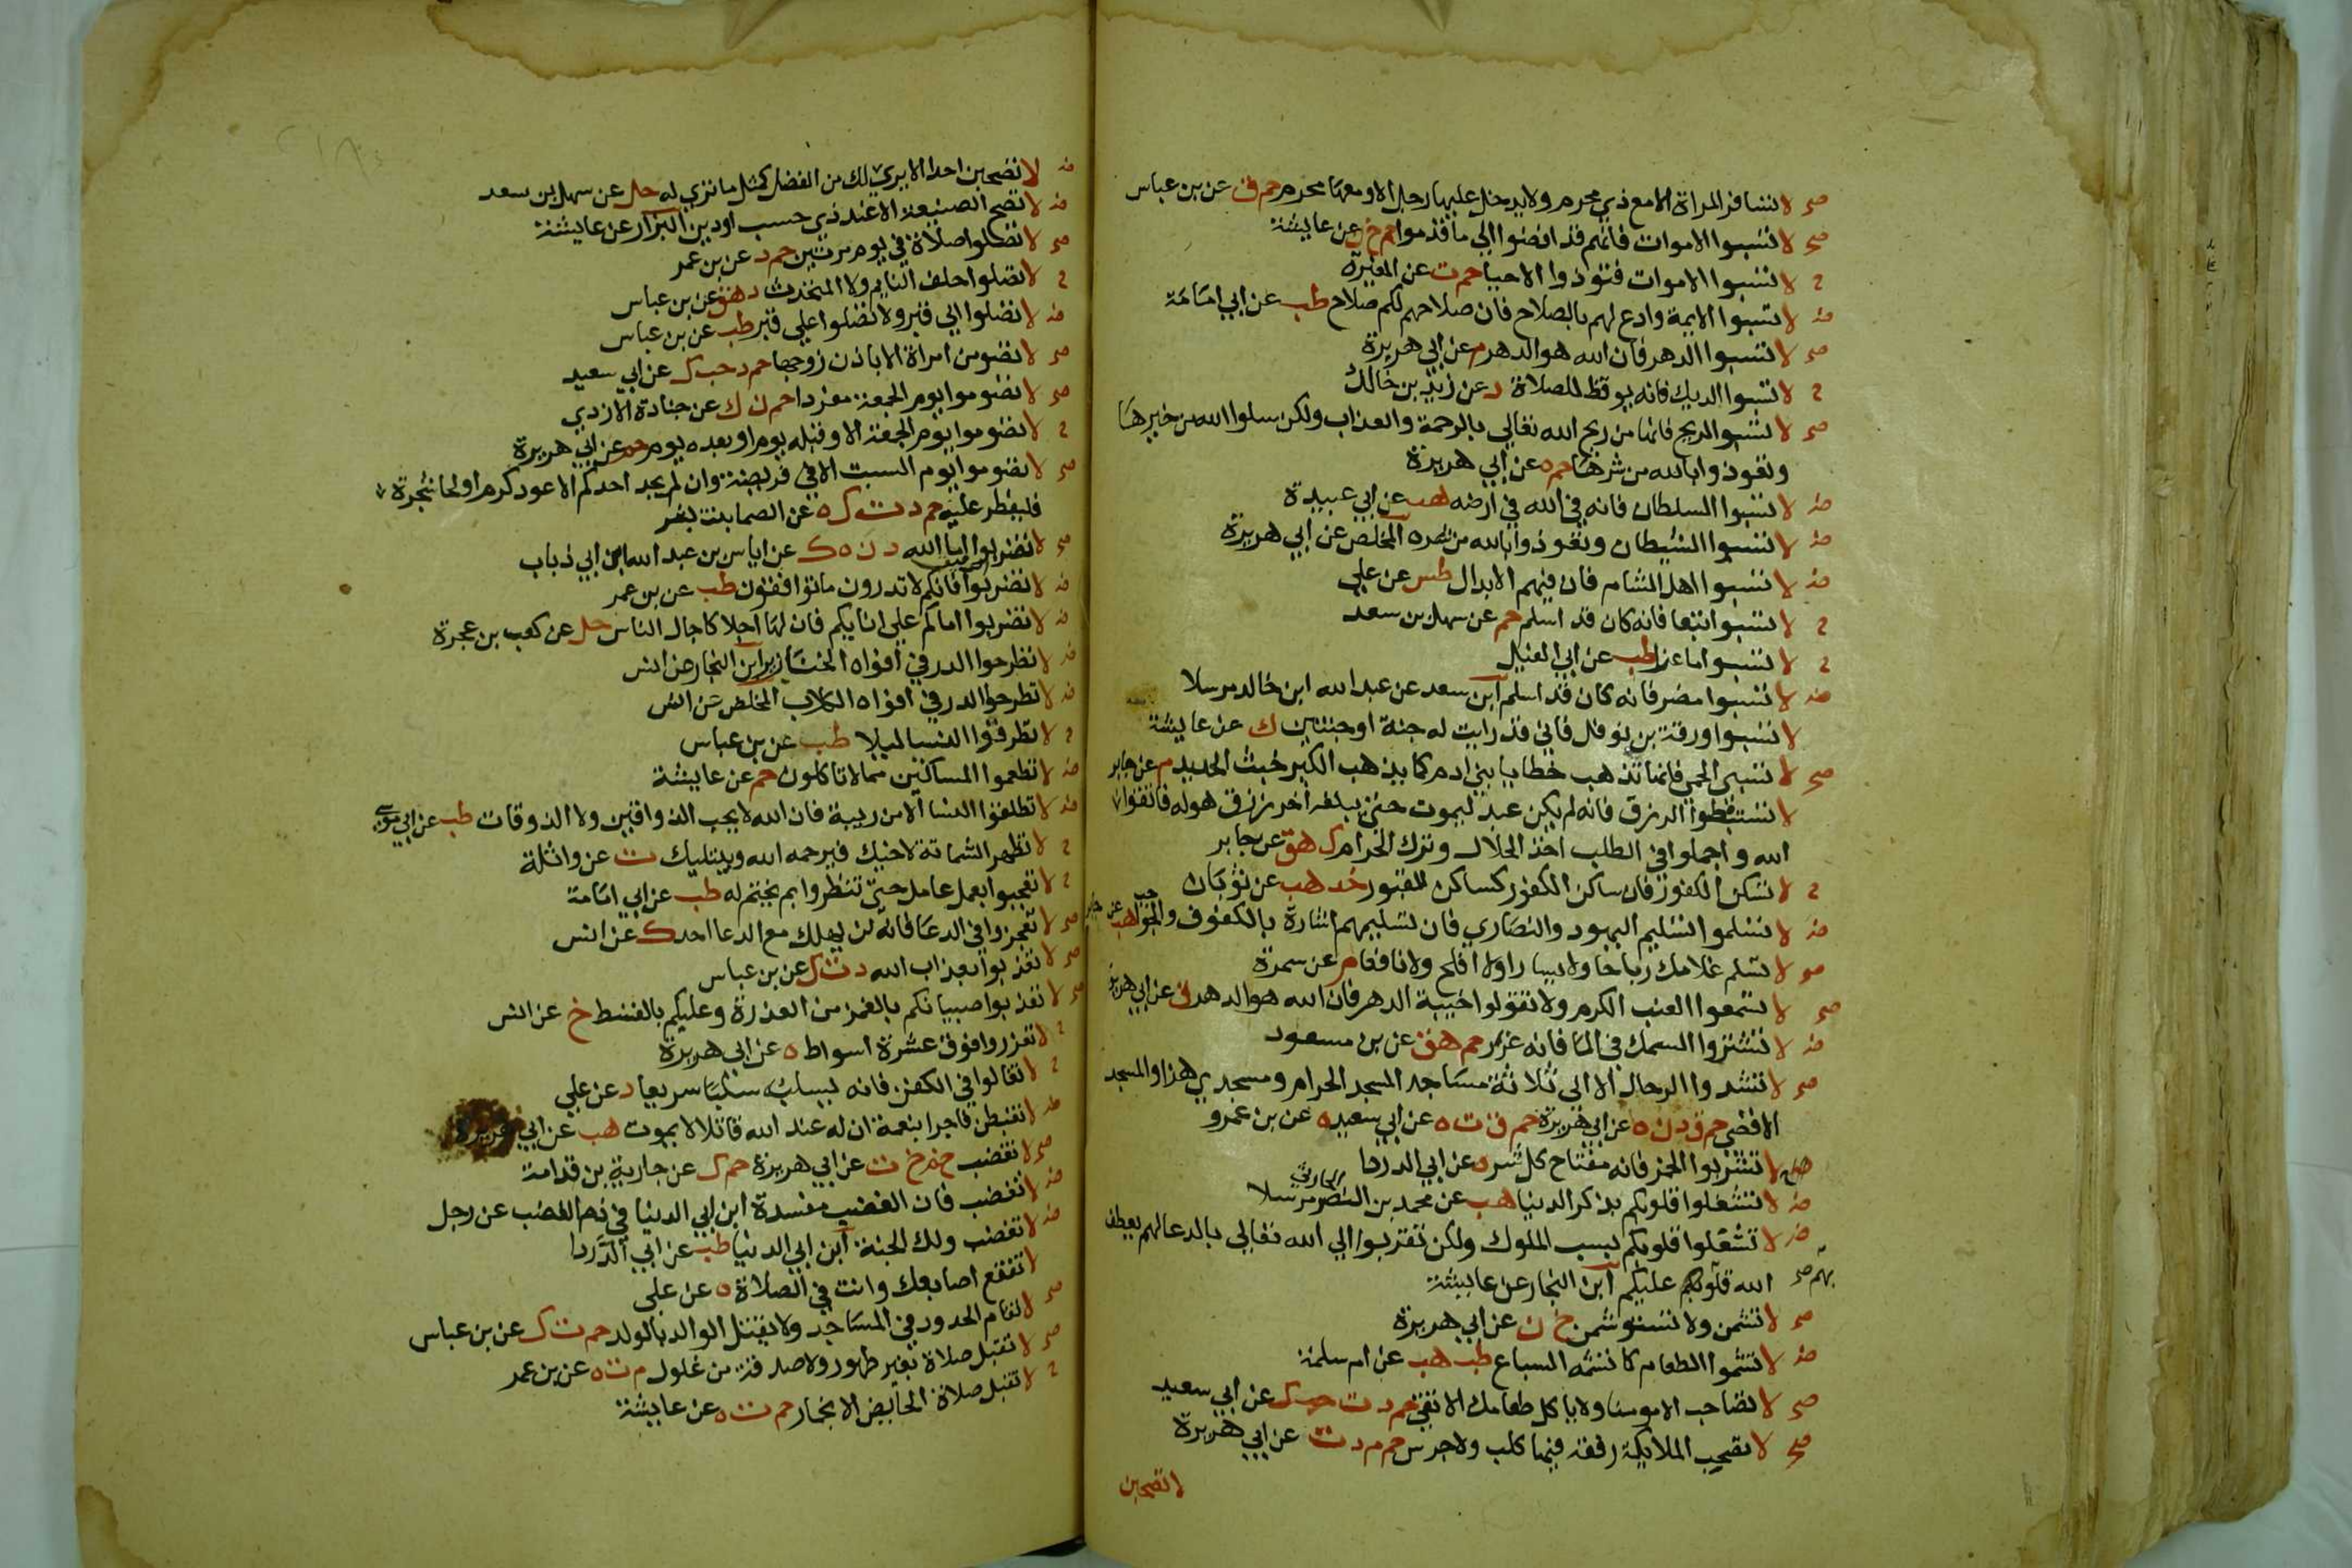 صح لا تسافر المراة الا مع ذي محرم ولا يدخل عليها رجل الا ومعها محرم حم ق عن بن عباس
صح لا تسبوا الاموات فانهم قد افضوا الي ما قدموا حم خ ن عن عايشة
ح لا تسبوا الاموات فتوذوا الاحيا حم ت عن المغيرة
ض لا تسبوا الايمة وادع لهم بالصلاح فان صلاحهم لكم صلاح طب عن ابي امامة
صح لا تسبوا الدهر فان الله هو الدهر م عن ابي هريرة
ح لا تسبوا الديك فانه يوقظ للصلاة د عن زيد بن خالد
صح لا تسبوا الريح فانها من ريح الله تعالي بالرحمة والعذاب ولكن سلوا الله من خيرها
وتعوذوا بالله من شرها حم ه عن ابي هريرة
ض لا تسبوا السلطان فانه في الله في ارضه هب عن ابي عبيدة
ض لا تسبوا الشيطان وتعوذوا بالله من شره المخلص عن ابي هريرة
ض لا تسبوا اهل الشام فان فيهم الابدال طس عن علي
ح لا تسبوا تبعا فانه كان قد اسلم حم عن سهل بن سعد
ح لا تسبوا ماعزا طب عن ابي الفيل
ض لا تسبوا مضر فانه كان قد اسلم ابن سعد عن عبد الله ابن خالد مرسلا
لا تسبوا ورقة بن نوفل فاني قد رايت له جنة او جنتين ك عن عايشة
صح لا تسبي الحمي فانها تذهب خطايا بني ادم كما يذهب الكير خبث الحديد م عن جابر
لا تستبطوا الرزق فانه لم يكن عبد ليموت حتى يبلغه اخر رزق هو له فاتقوا
الله واجملوا في الطلب اخذ الحلال وترك الحرام ك هق عن جابر
ح لا تسكن الكفور فان ساكن الكفور كساكن القبور خد هب عن ثوبان
ض لا تسلموا تسليم اليهود والنصاري فان تسليمهم اشارة بالكفوف والحواجب هب عن جابر
صح لا تسم غلامك رباحا ولا يسارا ولا افلح ولا نافعا م عن سمرة
صح لا تسموا العنب الكرم ولا تقولوا خيبة الدهر فان الله هو الدهر ق عن ابي هريرة
ض لا تشتروا السمك في الما فانه غرر حم هق عن بن مسعود
صح لا تشدوا الرحال الا الى ثلاثة مساجد المسجد الحرام ومسجدي هذا والمسجد
الاقصي حم ق د ن ه عن ابي هريرة حم ق ت ه عن ابي سعيد ه عن بن عمرو
صح لا تشربوا الخمر فانه مفتاح كل شر ه عن ابي الدردا
ض لا تشغلوا قلوبكم بذكر الدنيا هب عن محمد بن النضر الحارثي مرسلا
ض لا تشغلوا قلوبكم بسب الملوك ولكن تقربوا الي الله تعالي بالدعا لهم يعطف
الله قلوبهم عليكم ابن النجار عن عايشة
صح لا تشمن ولا تستوشمن خ ن عن ابي هريرة
ض لا تشموا الطعام كما تشمه السباع طب هب عن ام سلمة
صح لا تصاحب الا مومنا ولا ياكل طعامك الا تقي حم د ت حب ك عن ابي سعيد
صح لا تصحب الملايكة رفقة فيها كلب ولا جرس حم م د ت عن ابي هريرة
لا تصحبن
ض لا تصحبن احدا لا يري لك من الفضل كمثل ما تري له حل عن سهل بن سعد
ض لا تصح الصنيعة الا عند ذي حسب او دين البزار عن عايشة
صح لا تصلوا صلاة في يوم مرتين حم د عن بن عمر
ح لا تصلوا خلف النايم ولا المتحدث د هق عن بن عباس
ض لا تصلوا الي قبر ولا تصلوا علي قبر طب عن بن عباس
صح لا تصومن امراة الا باذن زوجها حم د حب ك عن ابي سعيد
صح لا تصوموا يوم الجمعة مفردا حم ن ك عن جنادة الازدي
ح لا تصوموا يوم الجمعة الا وقبله يوم او بعده يوم حم عن ابي هريرة
صح لا تصوموا يوم السبت الا في فريضة وان لم يجد احدكم الا عود كرم او لحا شجرة
فليفطر عليه حم د ت ك ه عن الصما بنت بسر
صح لا تضربوا اما الله د ن ه ك عن اياس بن عبد الله ابن ابي ذباب
ض لا تضربوا الرقيق فانكم لا تدرون ما توافقون طب عن بن عمر
ض لا تضربوا اماكم علي انايكم فان لها اجلا كاجال الناس حل عن كعب بن عجرة
ض لا تطرحوا الدر في افواه الخنازير ابن النجار عن انس
ض لا تطرحوا الدر في افواه الكلاب المخلص عن انس
ح لا تطرقوا النسا ليلا طب عن بن عباس
ض لا تطعموا المساكين مما لا تاكلون حم عن عايشة
ض لا تطلقوا النسا الا من ريبة فان الله لا يحب الذواقين ولا الذوقات طب عن ابي موسي
ح لا تظهر الشماتة لاخيك فيرحمه الله ويبتليك ت عن واثلة
ح لا تعجبوا بعمل عامل حتى تنظروا بم يختم له طب عن ابي امامة
صح لا تعجزوا في الدعا فانه لن يهلك مع الدعا احد ك عن انس
صح لا تعذبوا بعذاب الله د ت ك عن بن عباس
صح لا تعذبوا صبيانكم بالغمز من العذرة وعليكم بالقسط خ عن انس
ح لا تعزروا فوق عشرة اسواط ه عن ابي هريرة
ح لا تغالوا في الكفن فانه يسلبه سلبا سريعا د عن علي
ض لا تغبطن فاجرا بنعمة ان له عند الله قاتلا لا يموت هب عن ابي هريرة
صح لا تغضب حم خ ت عن ابي هريرة حم ك عن جارية بن قدامة
ض لا تغضب فان الغضب مفسدة ابن ابي الدنيا في ذم الغضب عن رجل
ض لا تغضب ولك الجنة ابن ابي الدنيا طب عن ابي الدردا
لا تفقع اصابعك وانت في الصلاة ه عن علي
صح لا تقام الحدود في المساجد ولا يقتل الوالد بالولد حم ت ك عن بن عباس
صح لا تقبل صلاة بغير طهور ولا صدقة من غلول م ت ه عن بن عمر
ح لا تقبل صلاة الحايض الا بخمار حم ت ه عن عايشة